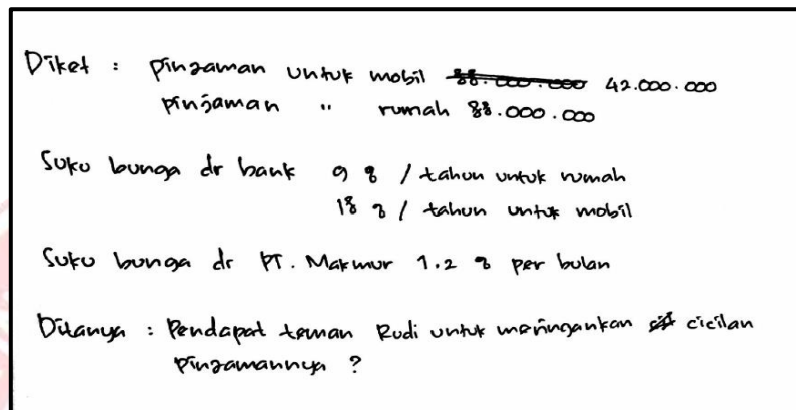 Diket : Pinjaman untuk mobil 88.000.000 42.000.000
pinjaman " rumah 88.000.000
Suku bunga dr bank 9 % / tahun untuk rumah
18 % / tahun untuk mobil
Suku bunga dr PT. Makmur 1.2 % per bulan
Ditanya : Pendapat teman Rudi untuk meringankan cicilan
Pinjamannya ?